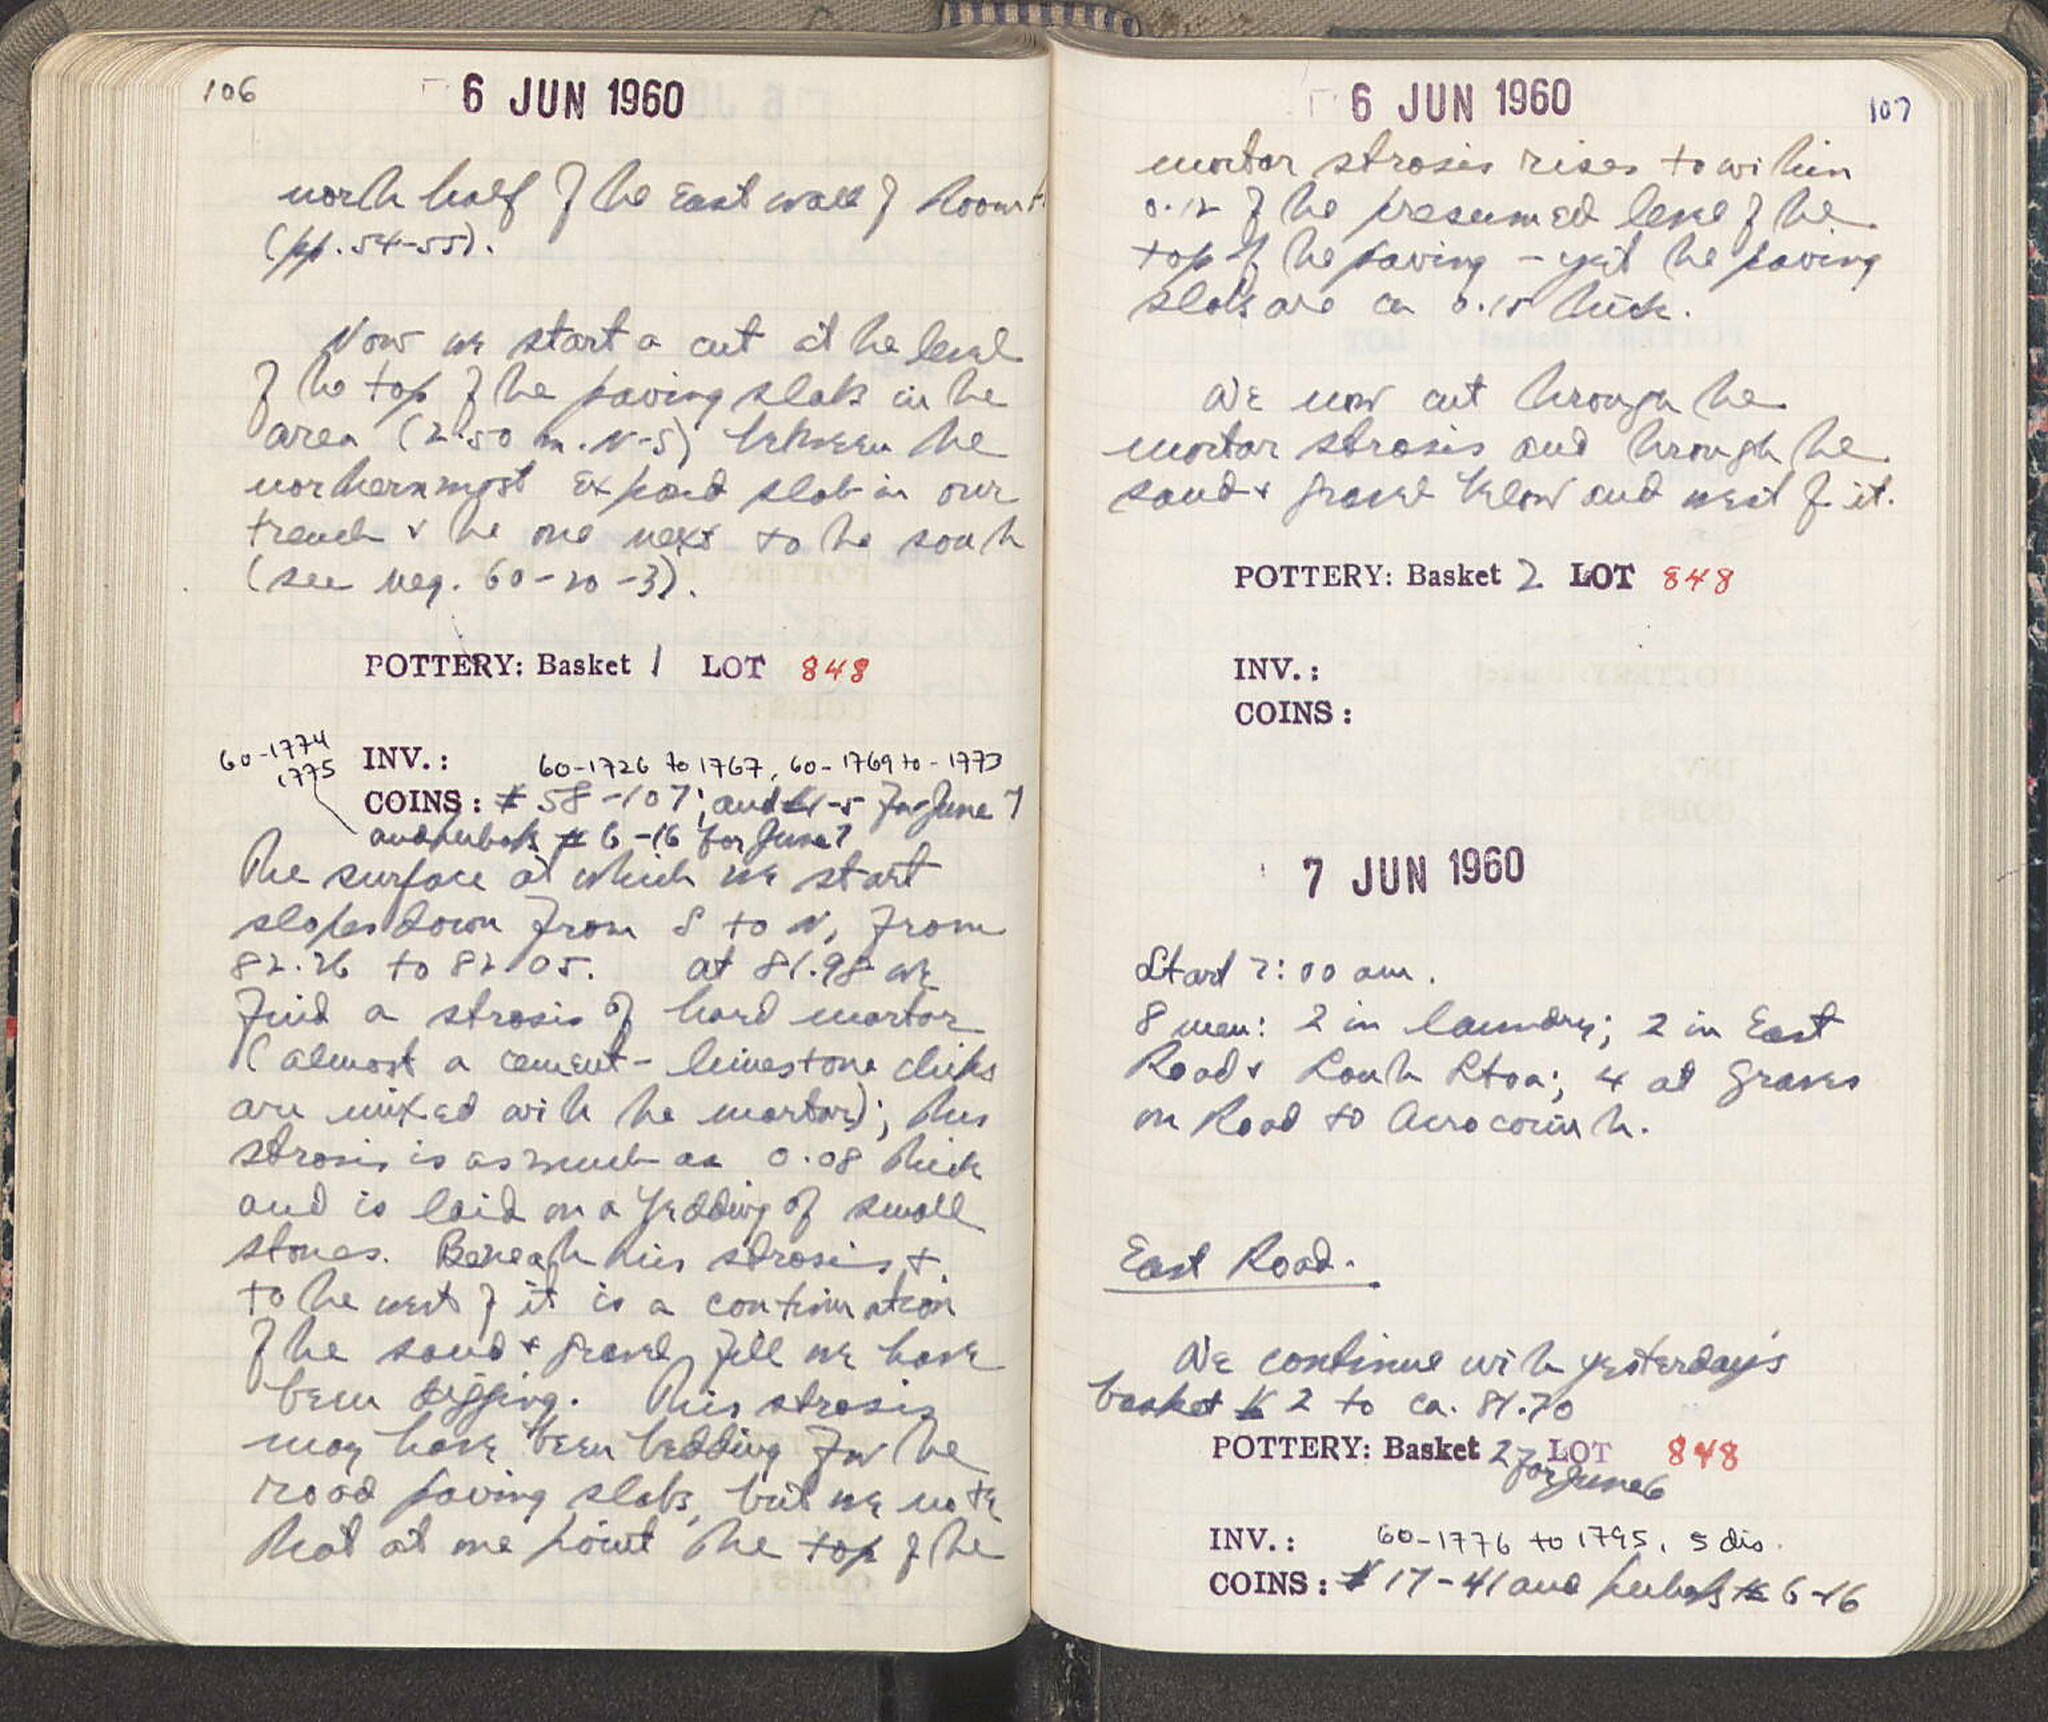 106
6 JUN 1960
north half of the East wall of Room
(pp. 54-55).
Now we start a cut at the level
of the top of the paving slabs in the
area (2.50 m. N-S) between the
northernmost exposed slab in our
trench & the one next to the south
(see neg. 60-20-3).
POTTERY: Basket 1 LOT 848
60-1774
1775
INV.: 60-1726 to 1767, 60-1769 to -1773
COINS: # 58-107; and 1-5 for June 7
and perhaps # 6-16 for June 7
The surface at which we start
slopes down from S to N, from
82.26 to 82.05. at 81.98 we
find a strosis of hard mortar
(almost a cement - limestone chips
are mixed with the mortar); this
strosis is as much as 0.08 thick
and is laid on a bedding of small
stones. Beneath this strosis +
to the west of it is a continuation
of the sand + gravel fill we have
been digging. This strosis
may have been bedding for the
road paving slabs, but we note
that at one point the top of the
6 JUN 1960
107
mortar strosis rises to within
0.12 of the presumed level of the
top of the paving - yet the paving
slabs are ca 0.15 thick.
We now cut through the
mortar strosis and through the
sand + gravel below and west of it.
POTTERY: Basket 2 LOT 848
INV.:
COINS:
7 JUN 1960
Start 7:00 am.
8 men: 2 in laundry; 2 in East
Road + South Stoa; 4 at graves
on Road to Acrocorinth.
East Road.
We continue with yesterday's
basket # 2 to ca. 81.70
POTTERY: Basket 2 LOT 848
for June 6
INV.: 60-1776 to 1795, 5 dis.
COINS: # 17-41 and perhaps # 6-16